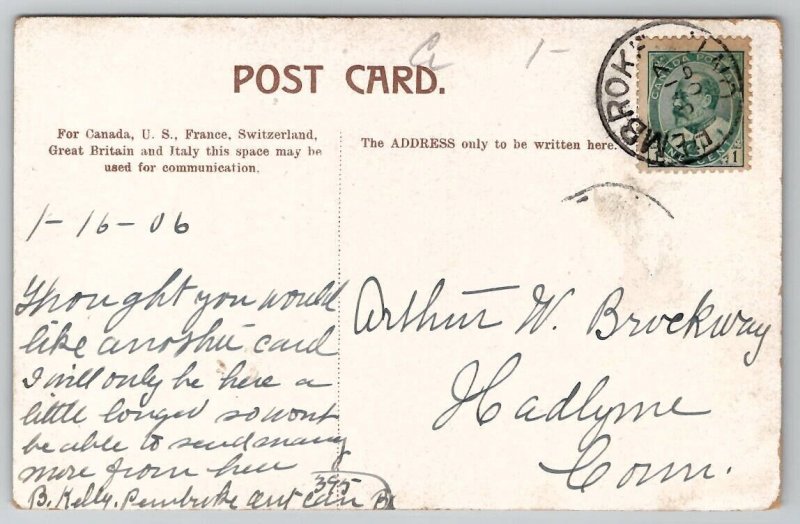 Ca 1-
POST CARD.
For Canada, U. S., France, Switzerland,
Great Britain and Italy this space may be
used for communication.
The ADDRESS only to be written here.
PEMBROKE
CANADA POSTAGE
1
1-16-06
Thought you would
like another card
I will only be here a
little longer so wont
be able to send many
more from here
395
B. Kelly. Pembroke Ont Can
Arthur W. Brockway
Hadlyme
Conn.